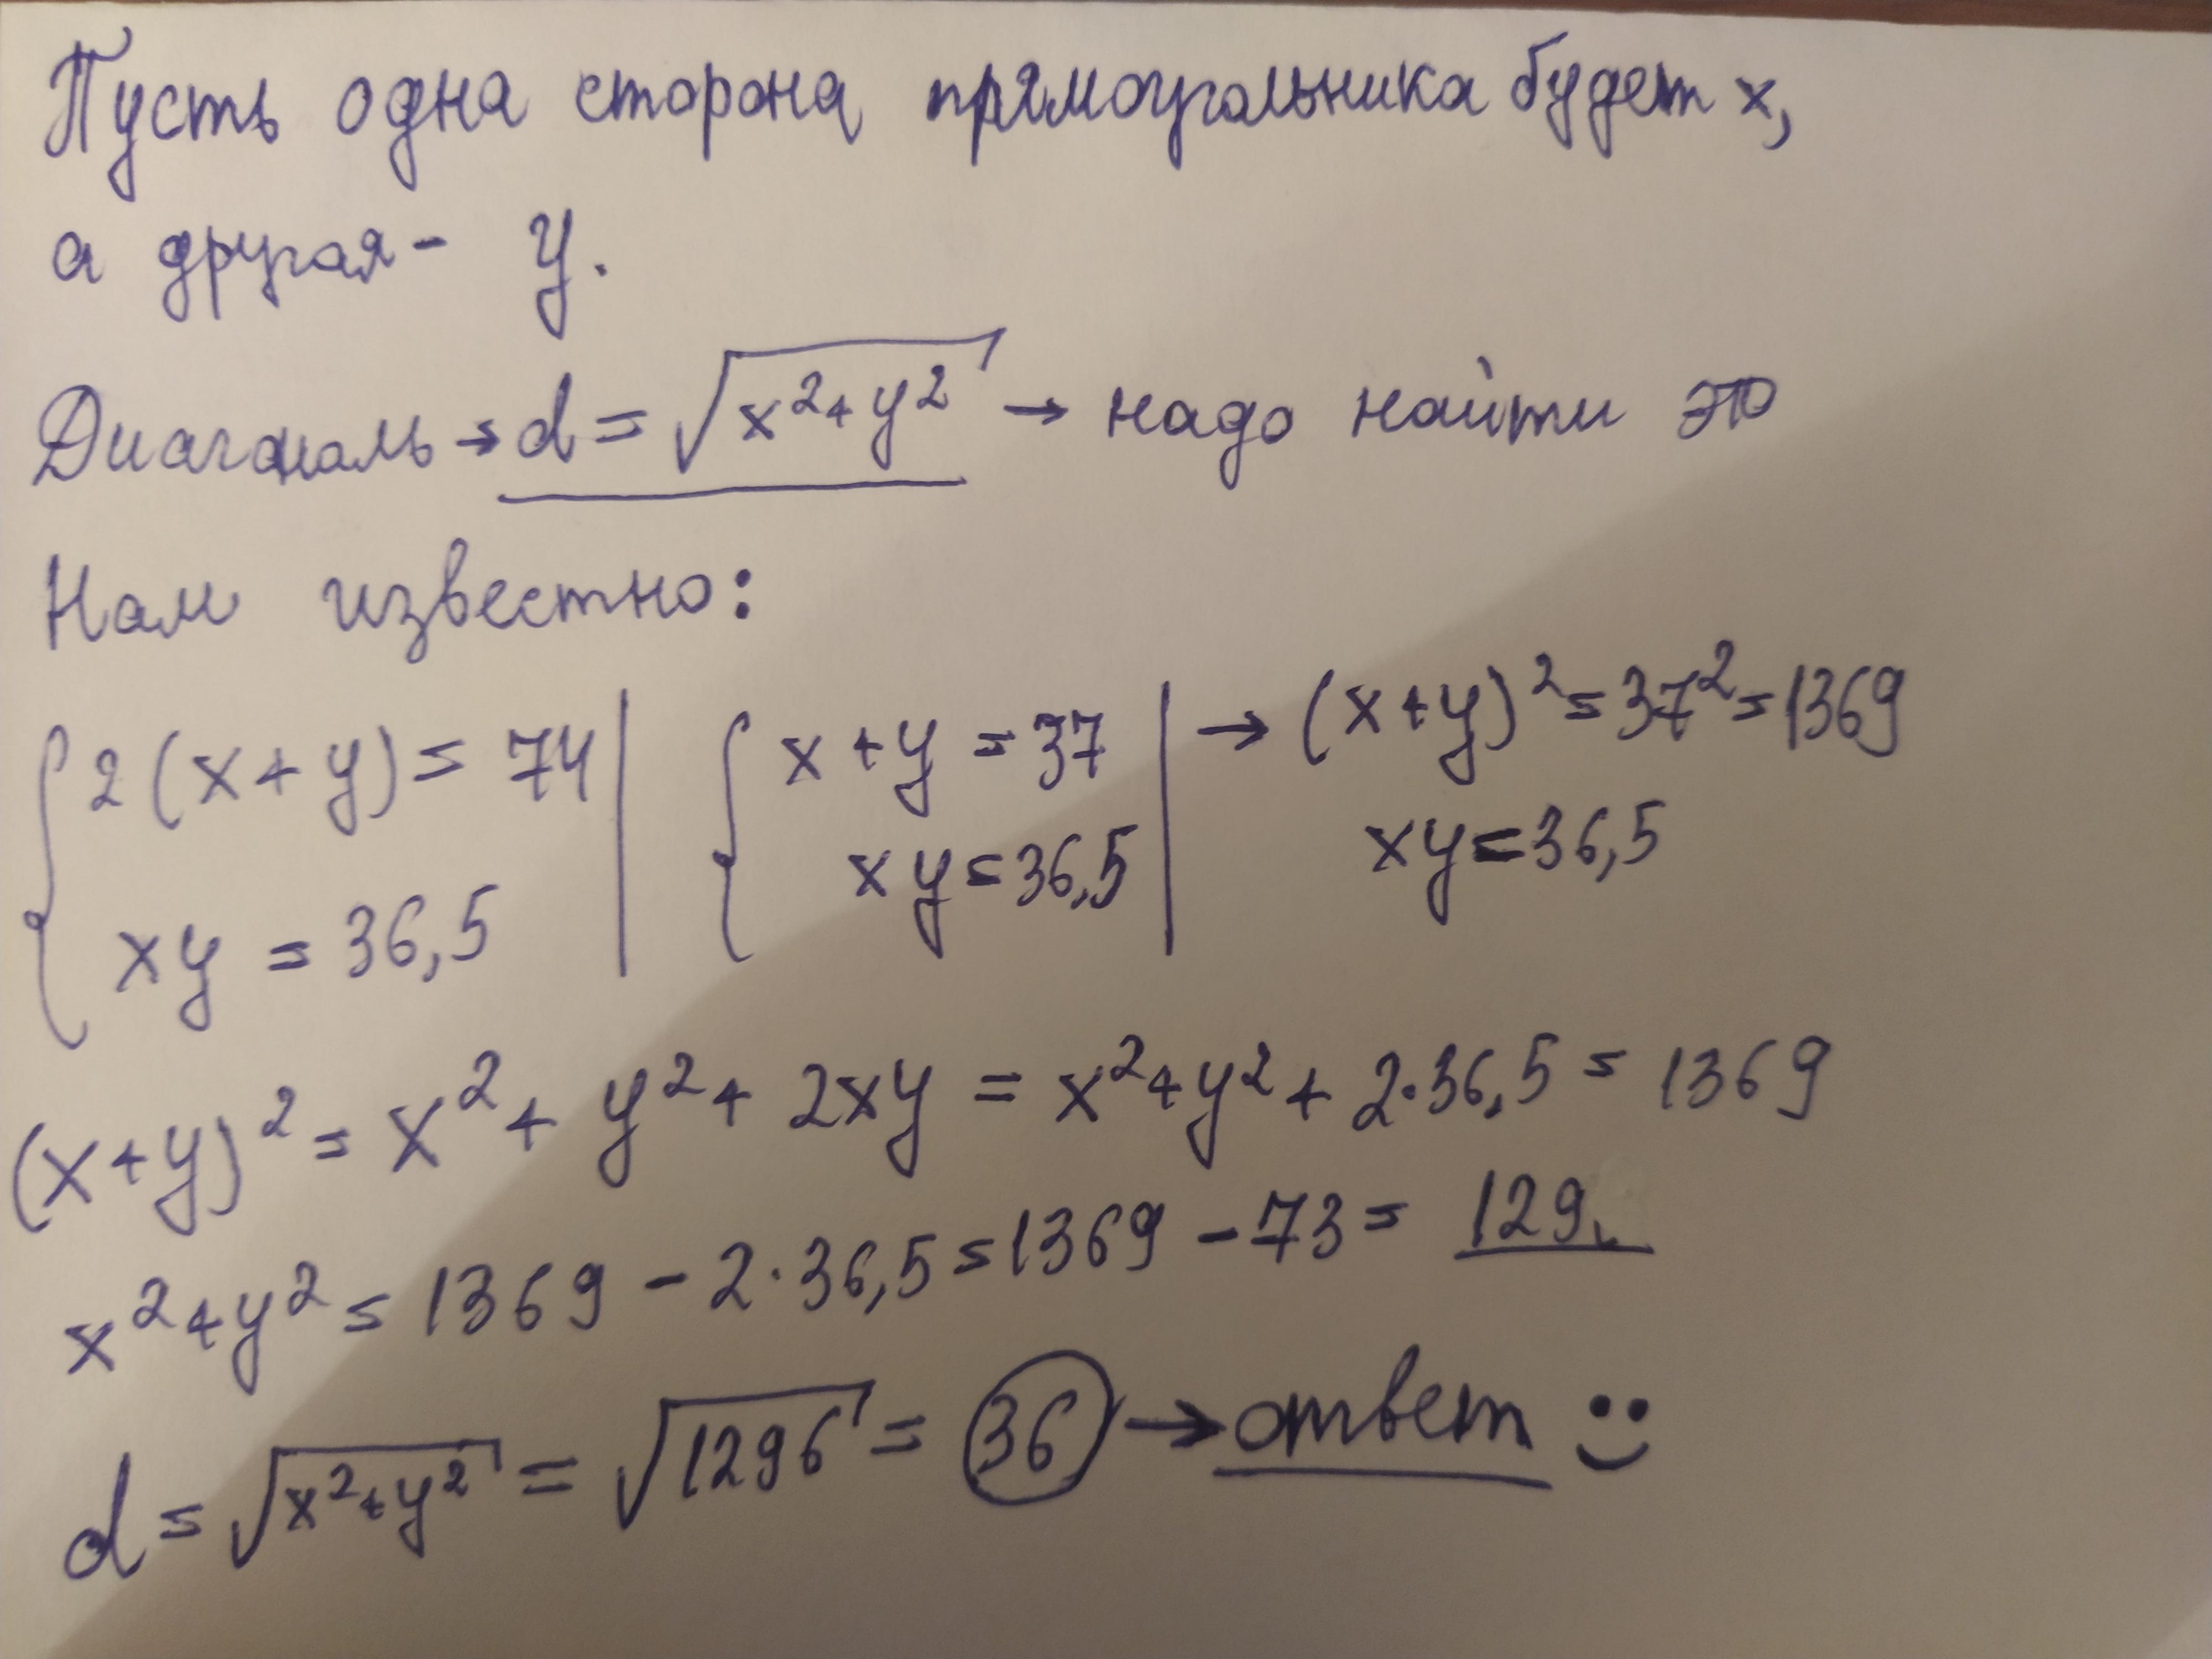 Пусть одна сторона прямоугольника будет x,
а другая - y.
Диагональ → d = √(x²+y²) → надо найти это
Нам известно:
{ 2(x+y) = 74 | { x+y = 37 | → (x+y)² = 37² = 1369
xy = 36,5 | xy = 36,5 | xy = 36,5
(x+y)² = x² + y² + 2xy = x²+y² + 2·36,5 = 1369
x²+y² = 1369 - 2·36,5 = 1369 - 73 = 129
d = √(x²+y²) = √1296 = 36 → ответ :)